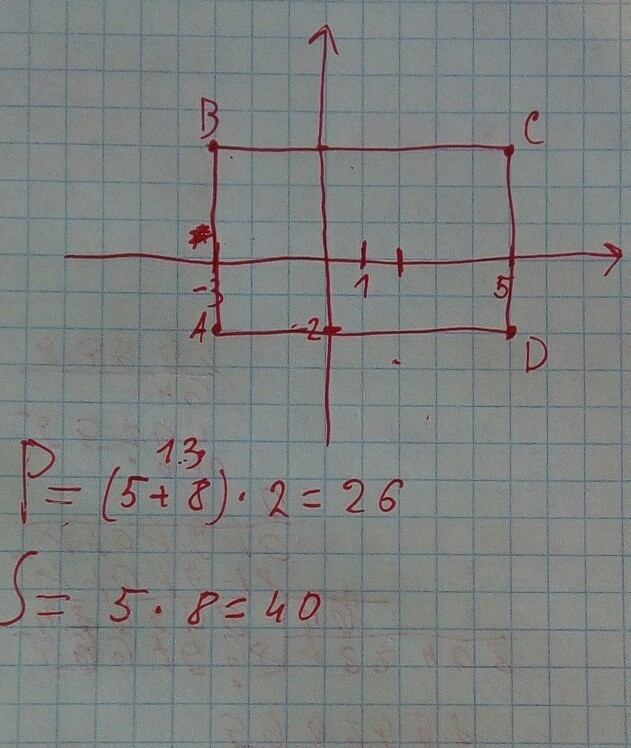 B C
-3 1 5
A -2 D
13
P = (5+8) · 2 = 26
S = 5 · 8 = 40